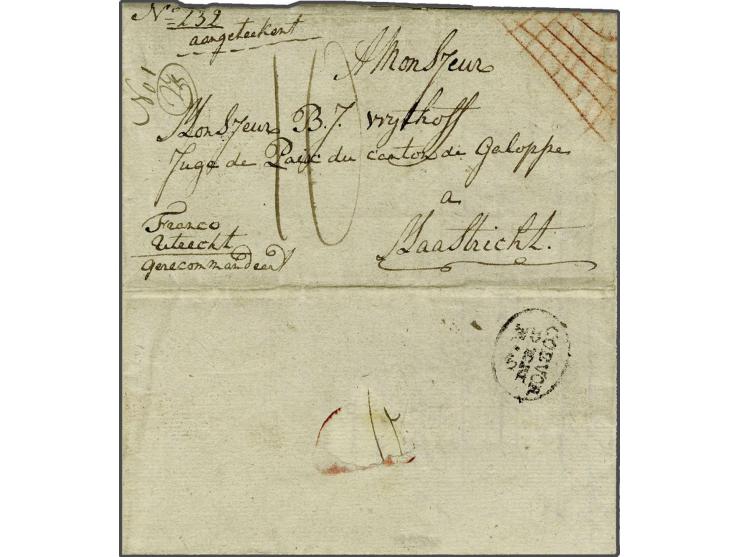 No 232
aangeteekent
No 1
A Monsieur
10
Monsieur B. J. vrythoff
Juge de Paix du canton de Galoppe
a
Maastricht.
Franco
Utrecht
gerecommandeert